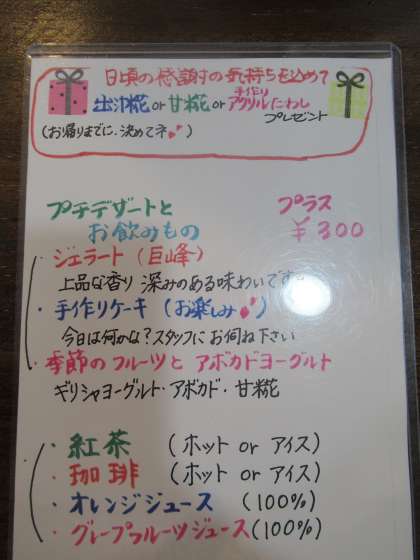 日頃の感謝の気持ちを込めて
出汁糀 or 甘糀 or 手作りアクリルたわし
プレゼント
(お帰りまでに、決めてネ)
プチデザートと プラス
お飲みもの ¥300
・ジェラート (巨峰)
上品な香り 深みのある味わいです
・手作りケーキ (お楽しみ)
今日は何かな?スタッフにお伺ね下さい
・季節のフルーツと アボカドヨーグルト
ギリシャヨーグルト・アボカド・甘糀
・紅茶 (ホット or アイス)
・珈琲 (ホット or アイス)
・オレンジジュース (100%)
・グレープフルーツジュース (100%)